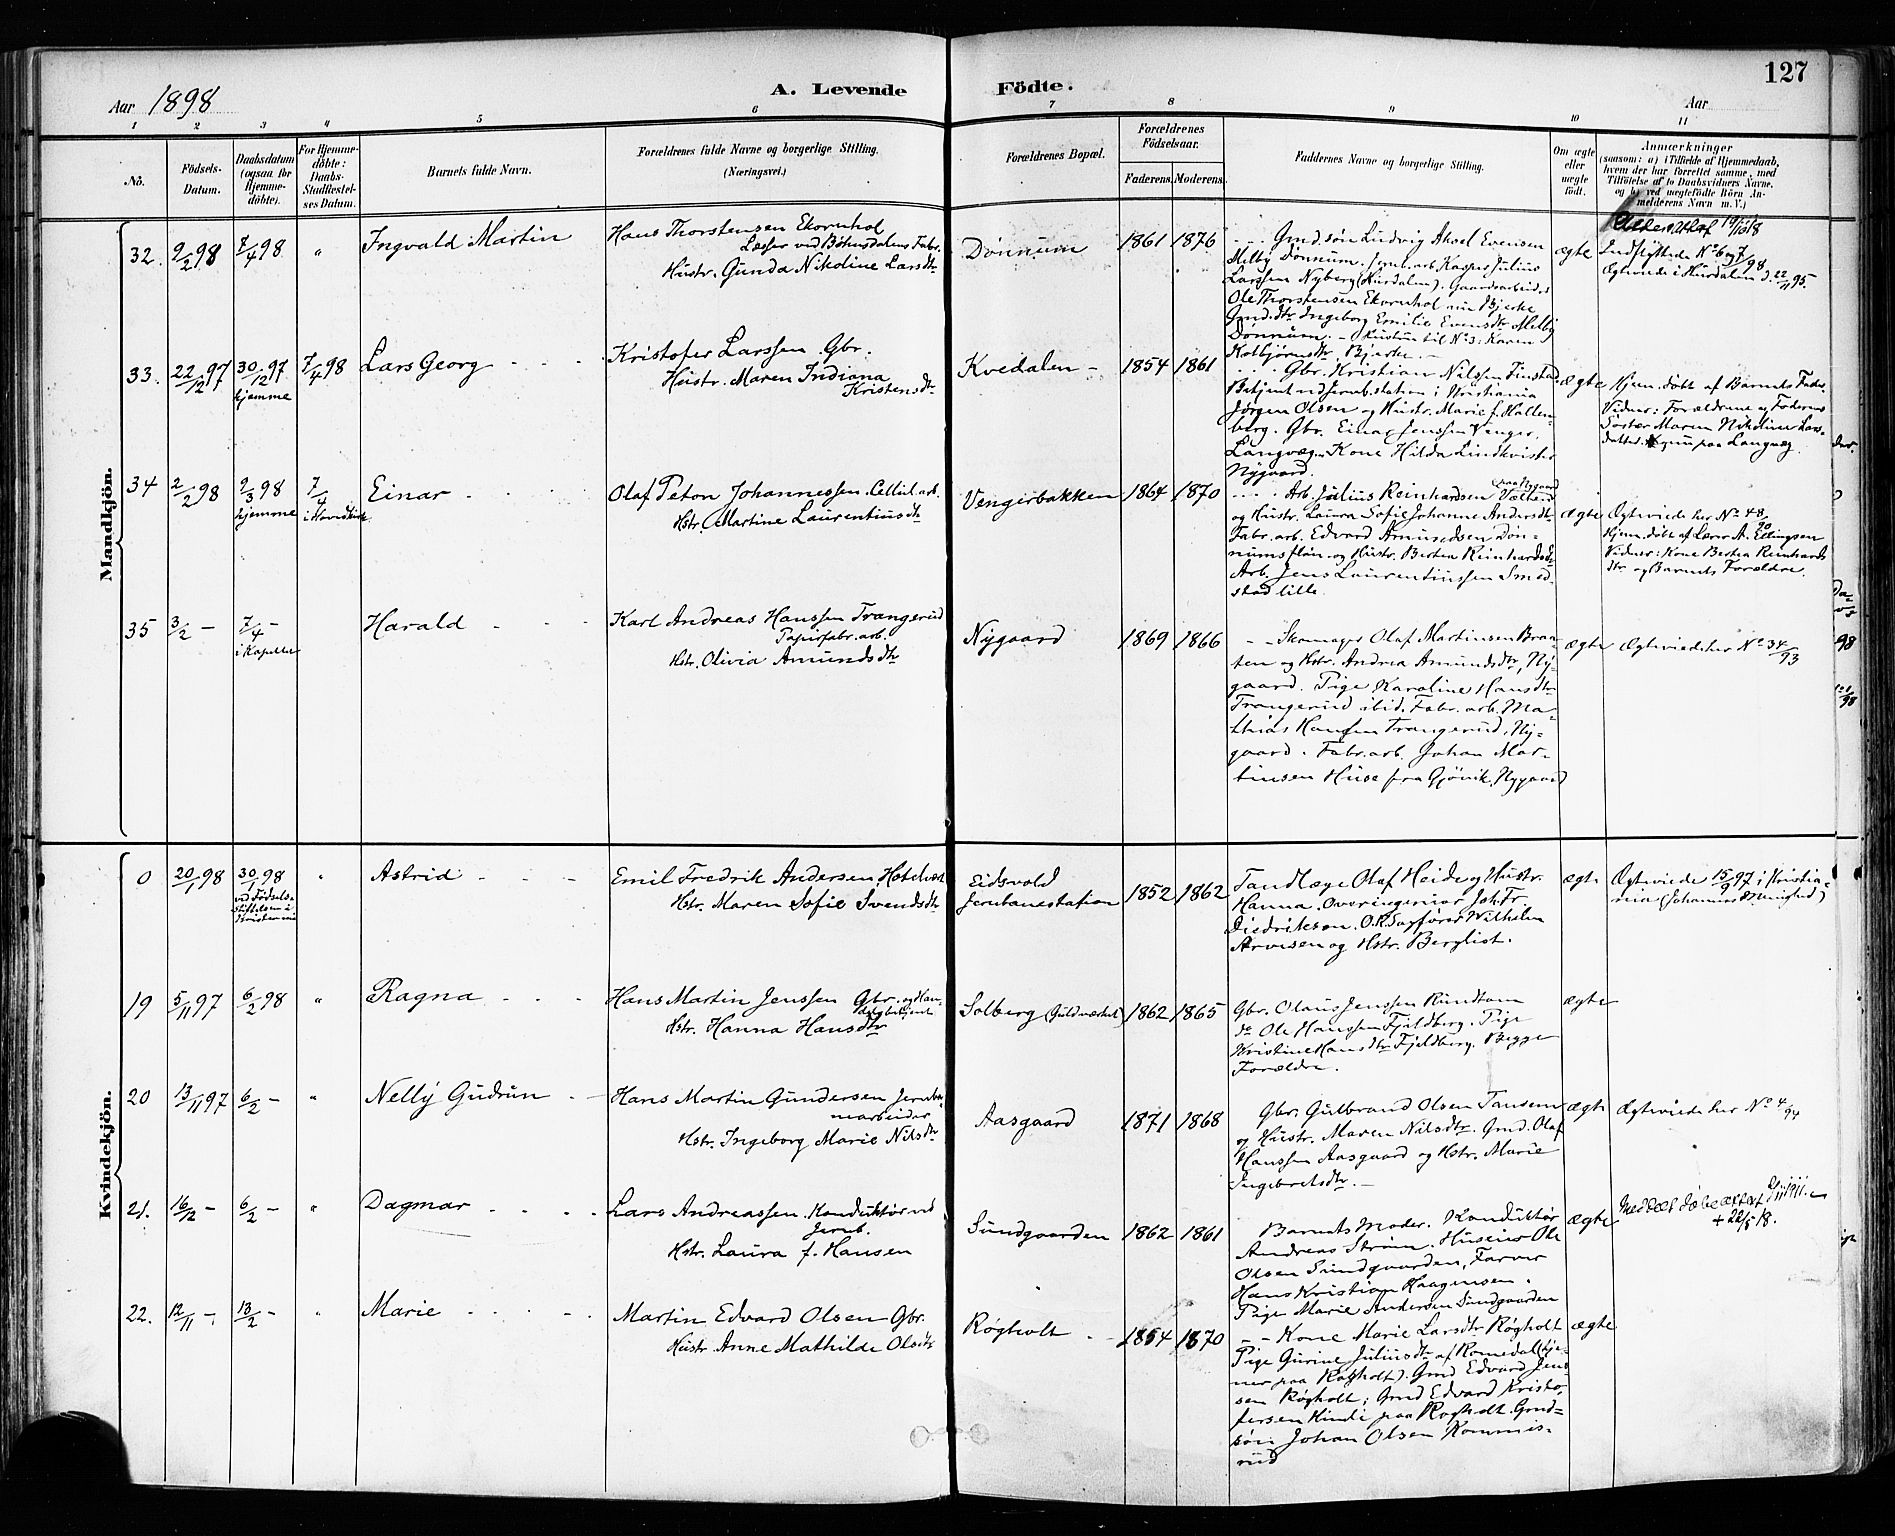 127
Aar 1898
A. Levende Födte.
Aar
1 2 3 4 5 6 7 8 9 10 11
No.
Födsels-Datum.
Daabsdatum (ogsaa for Hjemme-döbte).
For Hjemme-döbte: Daabs-Stadfæstel-ses Datum.
Barnets fulde Navn.
Forældrenes fulde Navne og borgerlige Stilling. (Næringsvei.)
Forældrenes Bopæl.
Forældrenes Födselsaar.
Faderens. Moderens.
Faddernes Navne og borgerlige Stilling.
Om ægte eller uægte födt.
Anmærkninger
(saasom: a) i Tilfælde af Hjemmedaab,
hvem der har forrettet samme, med
Tilföielse af to Daabsvidners Navne,
og b) ved uægtefödte Börn An-
melderens Navn m. V.)
Mandkjön.
32. 2/2 98 7/4 98 " Ingvald Martin
Hans Thorstensen Ekornhol
Læsser ved Bøhnsdalens Fabr.
Hustr. Gunda Nikoline Larsdtr
Dønnum 1861 1876
Gmd.søn Ludvig Aksel Evensen
Melby Dønnum. Jernb.arb. Kasper Julius
Larssen Nyberg (Hurdalen). Gaardsarbeider
Ole Thorstensen Ekornhol Bjerke
Gmd.dtr Ingeborg Emilie Evensdtr Melby
Dønnum. - Hustru til No 3: Karen
Kolbjørnsdtr, Bjerke. -
ægte
19/10 18
Indflyttede No 6 og 7/98
Ægteviede i Hurdalen d. 22/11 95.
33. 22/12 97 30/12 97 hjemme 7/4 98 Lars Georg - -
Kristofer Larssen Gbr.
Hustr. Maren Indiana
Kristensdtr
Kvedalen - 1854 1861
Gbr. Kristian Nilssen Finstad
Betjent ved Jernb.station i Kristiania
Jørgen Olsen og Hustr. Marie f. Hallen-
berg. Gbr. Einar Jenssen Venger,
Langvæg. Kone Hilda Lindkvister
Nygaard.
ægte
Hjem.døbt af Barnets Fader
Vidner: Forældrene og Faderens
Søster Maren Nikoline Lars-
datter. paa Langvæg.
34 2/2 98 2/3 98 hjemme 7/4 i Hovedkirk Einar - - -
Olaf Peton Johannessen. Cellul.arb.
Hstr. Martine Laurentiusdtr
Vengerbakken 1864 1870
Arb. Julius Reinhardsen paa Nygaard
og Hustr. Laura Sofie Johanne Andersdtr
Fabr. arb. Edvard Amundsen Døn-
numsflån og Hustr. Berthea Reinhardsdtr
Arb. Jens Laurentiussen Smed-
stad lille.
ægte
Ægteviede her No 48/90
Hjem.døbt af Lærer A. Ellingsen
Vidner: Kone Berthea Reinhards
dtr og Barnets Forældre.
35 3/2 - 7/4 - i Kapellet Harald - - -
Karl Andreas Hanssen Trangerud
Papirfabr.arb.
Hstr. Olivia Amundsdtr
Nygaard 1869 1866
- - Skomager Olaf Martinsen Braa-
ten og Hstr. Andrea Amundsdtr, Ny-
gaard. Pige Karoline Hansdtr
Trangerud ibid. Fabr. arb. Ma-
thias Hansen Trangerud, Ny-
gaard. Fabr.arb. Johan Mar-
tinsen Huse fra Gjøvik, Nygaard
ægte
Ægteviede her No 34/93
Kvindekjön.
0 20/1 98 30/1 98 ved Fødsels-Stiftelsen i Kristiania " Astrid - - -
Emil Fredrik Andersen, Hotelvært
Hstr. Maren Sofie Svendsdtr
Eidsvold
Jernbanestation 1852 1862
Tandlæge Olaf Heide og Hustr.
Hanna. Overingeniør Joh. Fr.
Diedriksen. O.R.Sagfører Wilhelm
Arnesen og Hstr. Bergliot.
ægte
Ægteviede 15/9 97 i Kristia-
nia (Johannes Menighed)
19 5/11 97 6/2 98 " Ragna - - -
Hans Martin Jenssen Gbr. og Han-
delsbetjent
Hstr. Hanna Hansdtr
Solberg (Guldværket) 1862 1865
Gbr. Olaus Jenssen Rundtom
do Ole Hanssen Fjeldberg. Pige
Kristine Hansdtr Fjeldberg. Begge
Forældre.
ægte
20 13/11 97 6/2 - " Nelly Gudrun -
Hans Martin Gundersen Jernba-
nearbeider
Hstr. Ingeborg Marie Nilsdtr
Aasgaard 1871 1868
Gbr. Gulbrand Olsen Tansem
og Hustr. Maren Nilsdtr. Gmd. Olaf
Hanssen Aasgaard og Hstr. Marie
Ingebretsdtr. -
ægte
Ægteviede her No 4/94
21. 16/12 - 6/2 - " Dagmar - - -
Lars Andreassen Konduktør ved
Jernb.
Hstr. Laura f. Hansen
Sundgaarden 1862 1861
Barnets Moder. Konduktør
Andreas Strøm. Huseier Ole
Olsen Sundgaarden, Farver
Hans Kristian Haagensen.
Pige Marie Andersen Sundgaarden
ægte
Meddelt døbeattest 1911.
+ 22/5 18.
22. 12/11 - 13/2 - " Marie - - -
Martin Edvard Olsen Gbr.
Hustr Anne Mathilde Olsdtr
Røgholt - 1854 1870
- - Kone Marie Larsdtr Røgholt
Pige Gurine Juliusdtr af Romedal (tje-
ner paa Røgholt). Gmd Edvard Jens-
sen Røgholt; Gmd Edvard Kristo-
fersen Hinde paa Røgholt. Gmd-
søn Johan Olsen Kommis-
rud
ægte